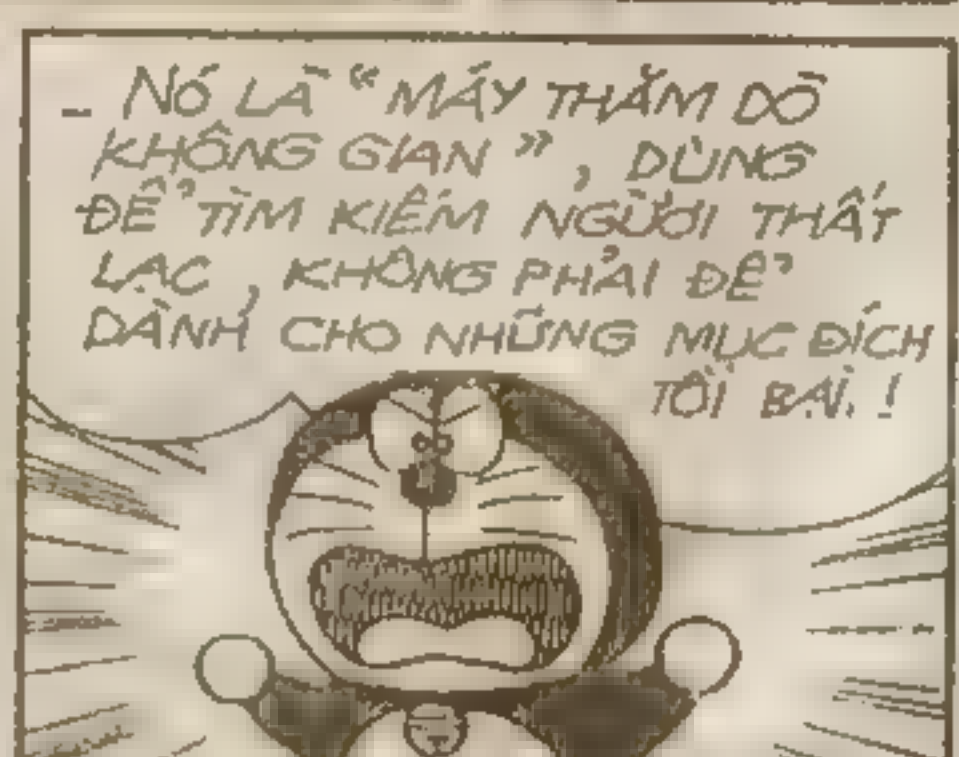 - NÓ LÀ “MÁY THĂM DÒ
KHÔNG GIAN”, DÙNG
ĐỂ TÌM KIẾM NGƯỜI THẤT
LẠC, KHÔNG PHẢI ĐỂ
DÀNH CHO NHỮNG MỤC ĐÍCH
TỒI BẠI !